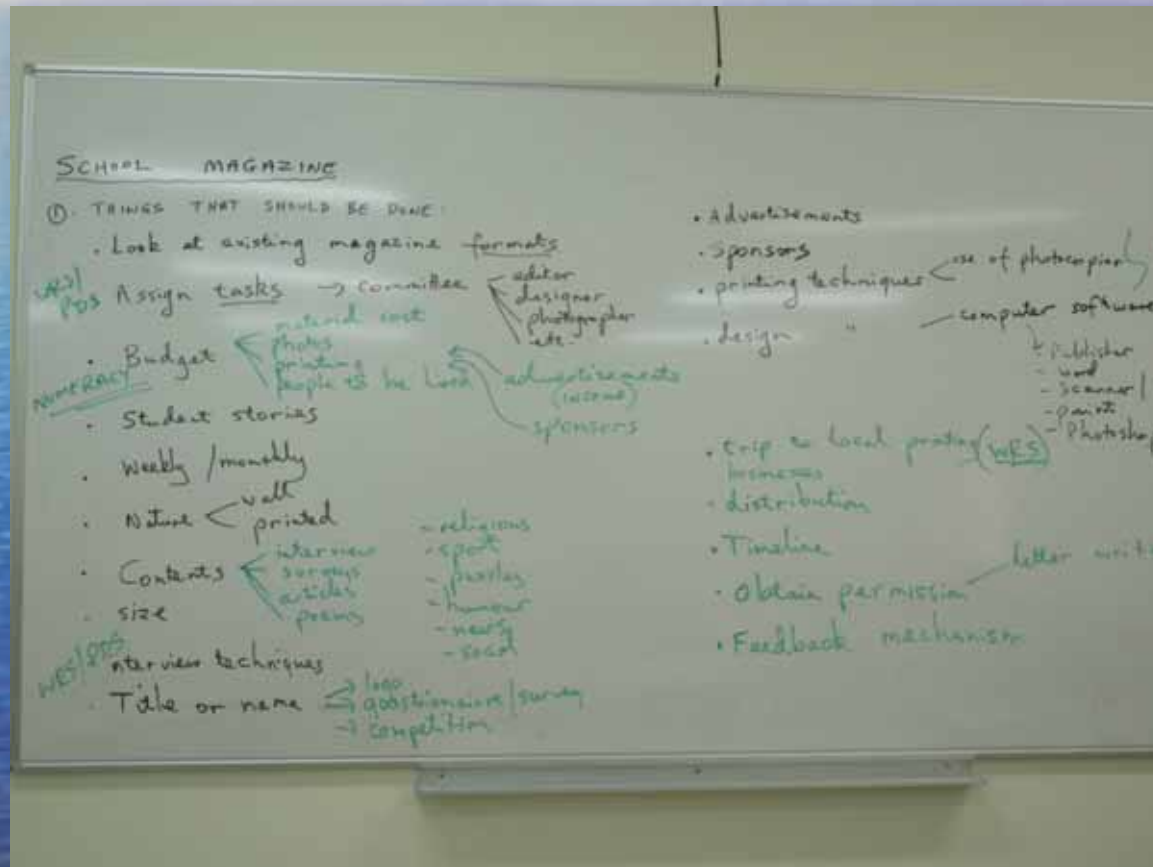 SCHOOL MAGAZINE
①. THINGS THAT SHOULD BE DONE:
. Look at existing magazine formats
PDS Assign tasks → committee
editor
designer
photographer
etc.
. Budget
material cost
photos
printing
people to be
advertisements
(income)
sponsors
NUMERACY
. Student stories
. Weekly / monthly
. Nature
wall
printed
. Contents
interview
surveys
articles
poems
- religious
- sport
- puzzles
- humour
- news
- social
. size
WRS/PDS
nterview techniques
. Title or name
→ logo
→ questionnaire/survey
→ competition
• Advertisements
• Sponsors
• printing techniques
use of photocopier
. design "
computer software
Publisher
- word
- Scanner/
- paint
- Photoshop
• trip to local printing (WRS)
businesses
- distribution
• Timeline
• Obtain permission
letter
• Feedback mechanism